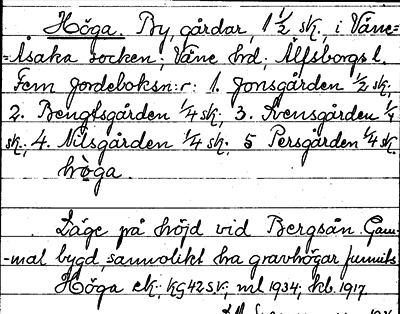 Höga. By, gårdar, 1 1/2 sk., i Väne-
=Åsaka socken; Väne hd; Älfsborgs l.
Fem jordeboksn:r: 1. Jonsgården 1/2 sk;
2. Bengtsgården 1/4 sk; 3. Svensgården 1/4
sk; 4. Nilsgården 1/4 sk; 5 Persgården 1/4 sk.
hòga.
Läge på höjd vid Bergsån. Gam-
-mal bygd, sannolikt ha gravhögar funnits.
Höga ek; KG42SV; ml 1934; kb. 1917